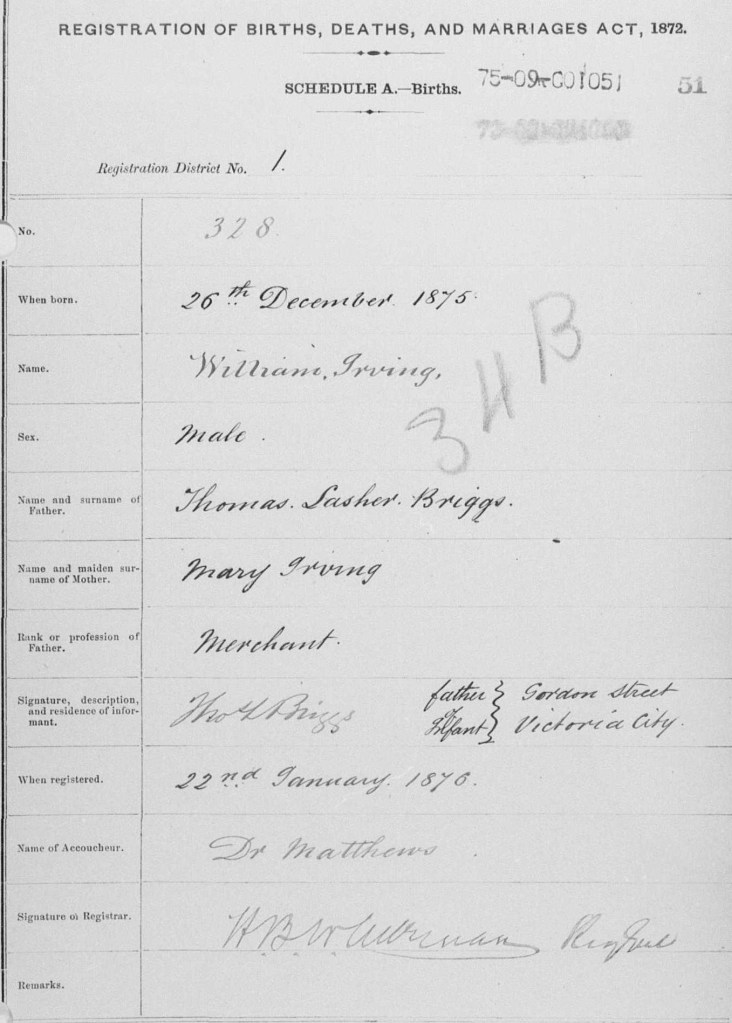 REGISTRATION OF BIRTHS, DEATHS, AND MARRIAGES ACT, 1872.
SCHEDULE A.—Births. 75-09-001051 51
Registration District No. 1.
No. 328.
When born. 26th December. 1875.
Name. William, Irving,
34B
Sex. Male.
Name and surname of
Father. Thomas. Lasher. Briggs.
Name and maiden sur-
name of Mother. Mary Irving
Rank or profession of
Father. Merchant.
Signature, description,
and residence of infor-
mant. Thos L Briggs father of Infant } Gordon Street Victoria City.
When registered. 22nd January. 1876.
Name of Accoucheur. Dr Matthews.
Signature of Registrar. H.B.W.
Remarks.